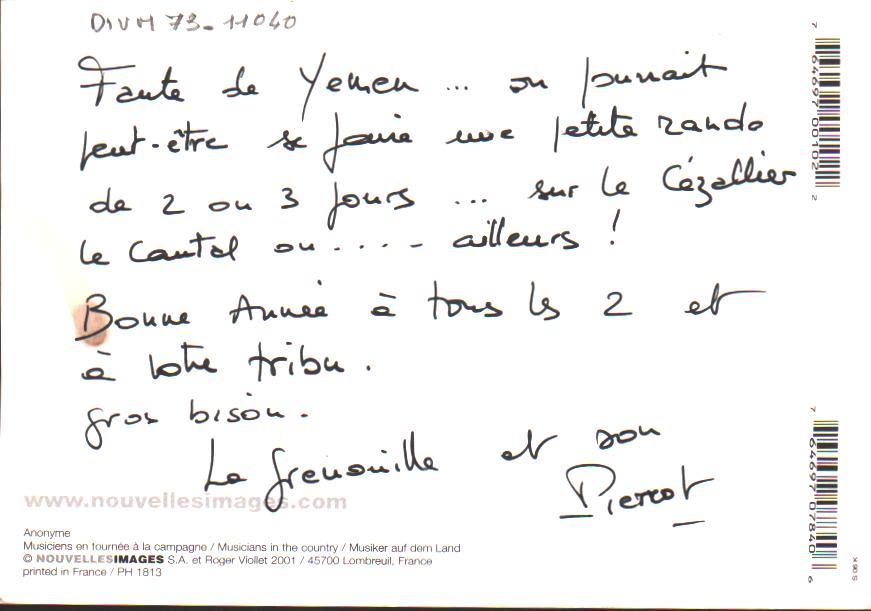 DIVM 73-11040
Faute de Yemen ... on pourrait
peut-être se faire une petite rando
de 2 ou 3 jours ... sur le Cézallier
le Cantal ou .... ailleurs !
Bonne Année à tous les 2 et
à votre tribu.
gros bisou.
La grenouille et son
Pierrot
www.nouvellesimages.com
Anonyme
Musiciens en tournée à la campagne / Musicians in the country / Musiker auf dem Land
© NOUVELLESIMAGES S.A. et Roger Viollet 2001 / 45700 Lombreuil, France
printed in France / PH 1813
7 64697 00102 2
7 64697 07840 6
X 90 S